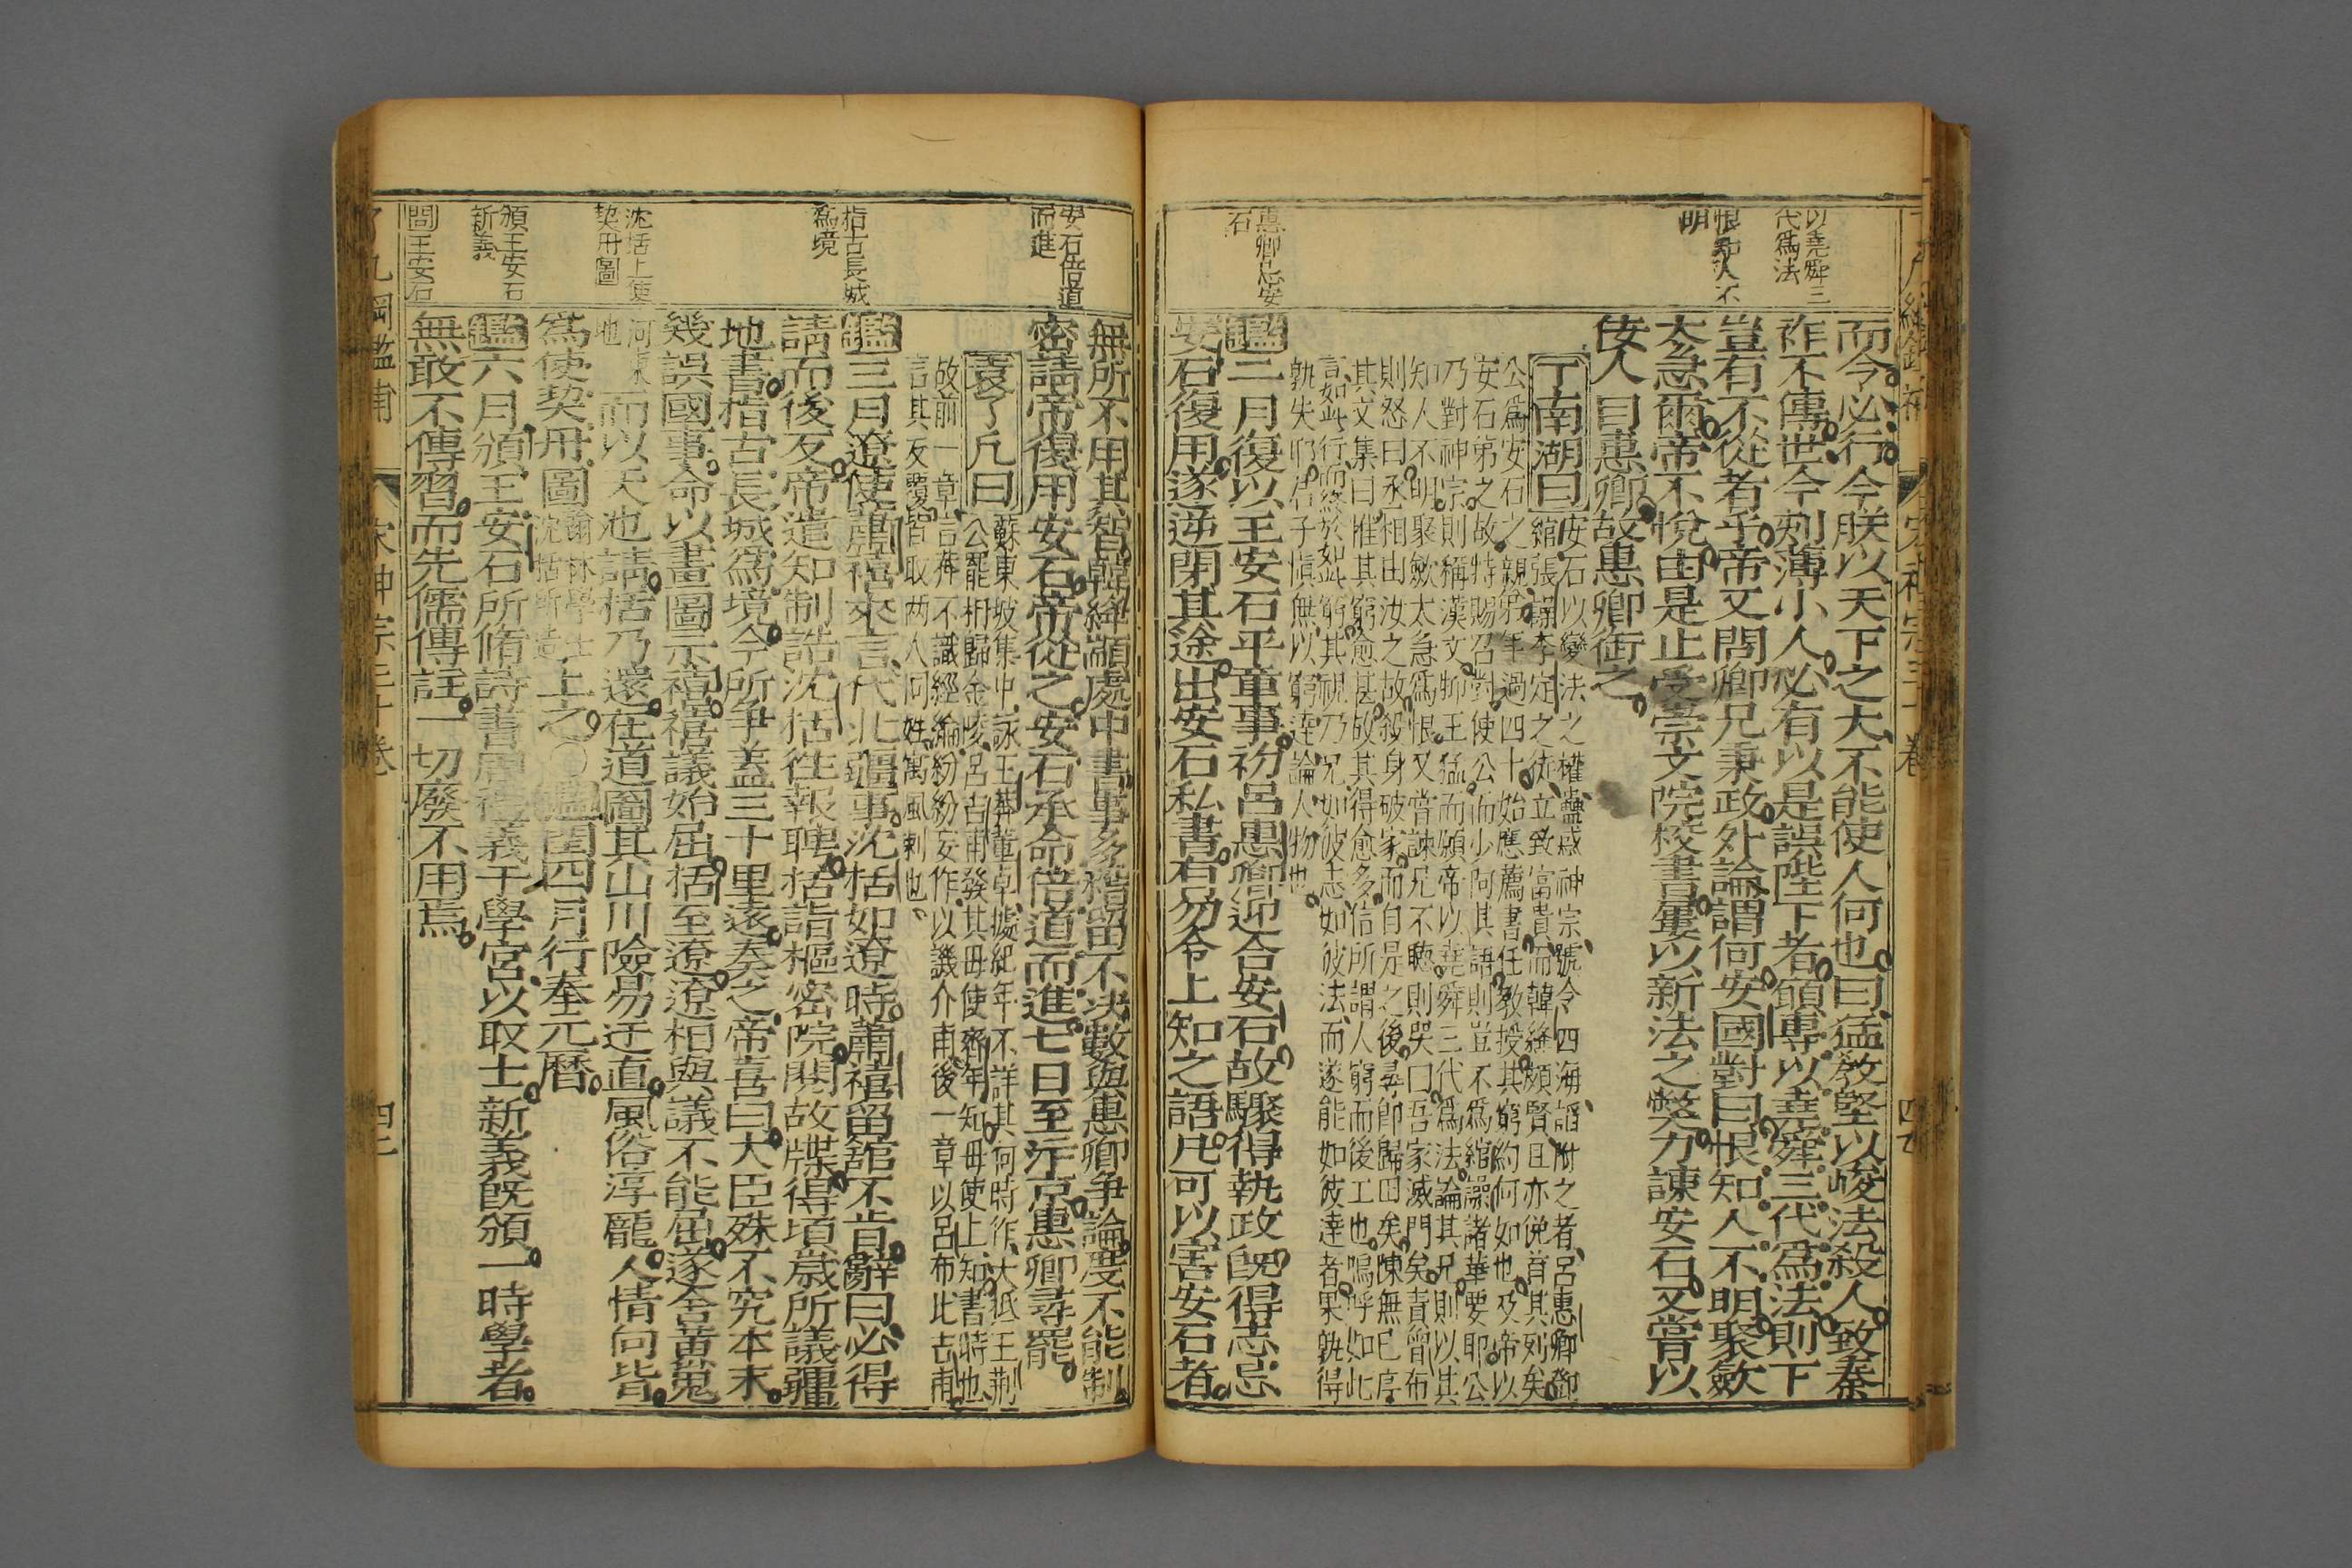 以堯舜三
代為法
恨知人不
明
惠卿忌安
石
而令必行今朕以天下之大不能使人何也曰猛敎堅以峻法殺人致秦
祚不傳世今刻薄小人必有以是誤陛下者願專以堯舜三代爲法則下
豈有不從者乎帝又問卿兄秉政外論謂何安國對曰恨知人不明聚斂
太急爾帝不悅由是止受崇文院校書屢以新法之獘力諫安石又嘗以
佞人目惠卿故惠卿銜之
丁南湖曰
安石以變法之權蠱惑神宗號令四海諂附之者呂惠卿鄧
綰張璪李定之徒立致富貴而韓絳頗賢且亦俛首其列矣
公爲安石之親弟年過四十始應薦書任敎授其窮約何如也及帝以
安石弟之故特賜召對使公而少阿其語則豈不爲綰璪諸華要耶公
乃對神宗則稱漢文抑王猛而願帝以堯舜三代爲法論其兄則以其
知人不明聚斂太急爲恨又嘗諫兄不聽則哭曰吾家滅門矣責曾布
則怒曰丞相由汝之故殺身破家而自是之後尋卽歸田矣陳無已序
其文集曰惟其窮愈甚故其得愈多信所謂人窮而後工也嗚呼如此
言如此行而終於如此窮其視乃兄如彼志如彼法而遂能如彼達者果孰得
孰失仰君子愼無以窮達論人物也
鑑二月復以王安石平章事初呂惠卿迎合安石故驟得執政旣得志忌
安石復用遂逆閉其途出安石私書有勿令上知之語凡可以害安石者
安石倍道
而進
指古長城
爲境
沈括上使
契丹圖
頒王安石
新義
問王安石
無所不用其智韓絳顓處中書事多稽留不决數與惠卿争論度不能制
密請帝復用安石帝從之安石承命倍道而進七日至汴京惠卿尋罷
袁了凡曰
蘇東坡集中詠王莽董卓據紀年不詳其何時作大抵王荆
公罷相歸金陵呂吉甫發其毋使齊年知毋使上知書時也
故前一章言莽不識經綸紛紛妄作以譏介甫後一章以呂布比吉甫
言其反覆皆取两人同姓寓風刺也
鑑三月遼使蕭禧來言代北疆事沈括如遼時蕭禧留舘不肯辭曰必得
請而後反帝遣知制誥沈括徃報聘括詣樞密院閱故牒得頃歲所議疆
地書指古長城爲境今所争蓋三十里遠奏之帝喜曰大臣殊不究本末
幾誤國事命以畫圖示禧禧議始屈括至遼遼相與議不能屈遂舍黄嵬
河東
地
而以天池請括乃還在道圖其山川險易迂直風俗淳龎人情向皆
爲使契丹圖
翰林學士
沈括所造
上之〇鑑閏四月行奉元曆
鑑六月頒王安石所脩詩書周禮義于學宮以取士新義旣頒一時學者
無敢不傳習而先儒傳註一切廢不用焉
了凡綱鑑補
宋神宗三十卷